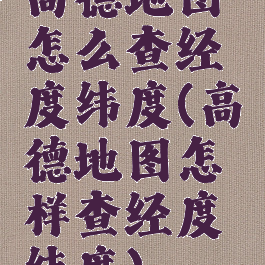 高德地图
怎么查经
度纬度(高
德地图怎
样查经度
纬度)